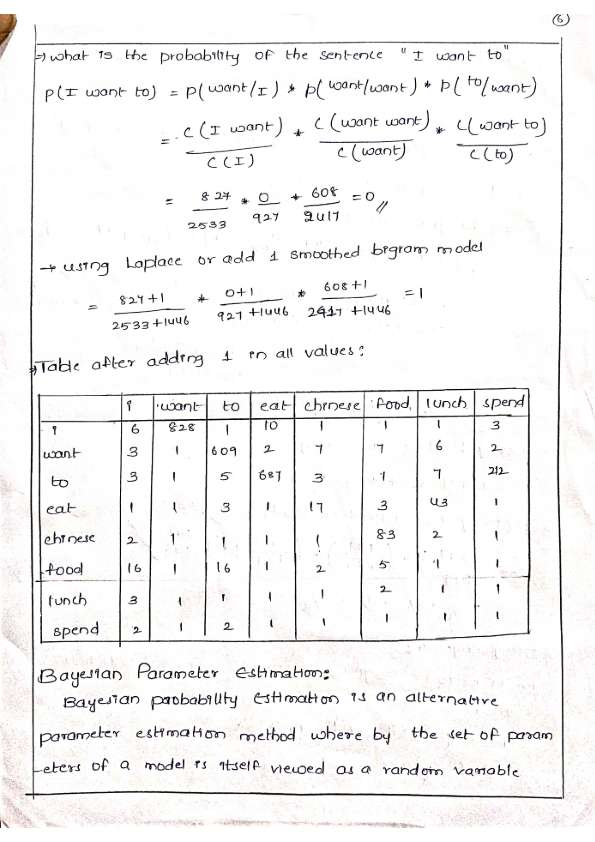 6
⇒ what is the probability of the sentence "I want to"
P(I want to) = P(want/I) * P(want/want) * P(to/want)
= C(I want)/C(I) * C(want want)/C(want) * C(want to)/C(to)
= 827/2533 * 0/927 * 608/2417 = 0 //
→ using Laplace or add 1 smoothed bigram model
= 827+1/2533+1446 * 0+1/927+1446 * 608+1/2417+1446 = 1
⇒ Table after adding 1 in all values:
i want to eat chinese food lunch spend
i 6 828 1 10 1 1 1 3
want 3 1 609 2 7 7 6 2
to 3 1 5 687 3 1 7 212
eat 1 1 3 1 17 3 43 1
chinese 2 1 1 1 1 83 2 1
food 16 1 16 1 2 5 1 1
lunch 3 1 1 1 1 2 1 1
spend 2 1 2 1 1 1 1 1
Bayesian Parameter Estimation:
Bayesian probability estimation is an alternative
parameter estimation method where by the set of param
-eters of a model is itself viewed as a random variable